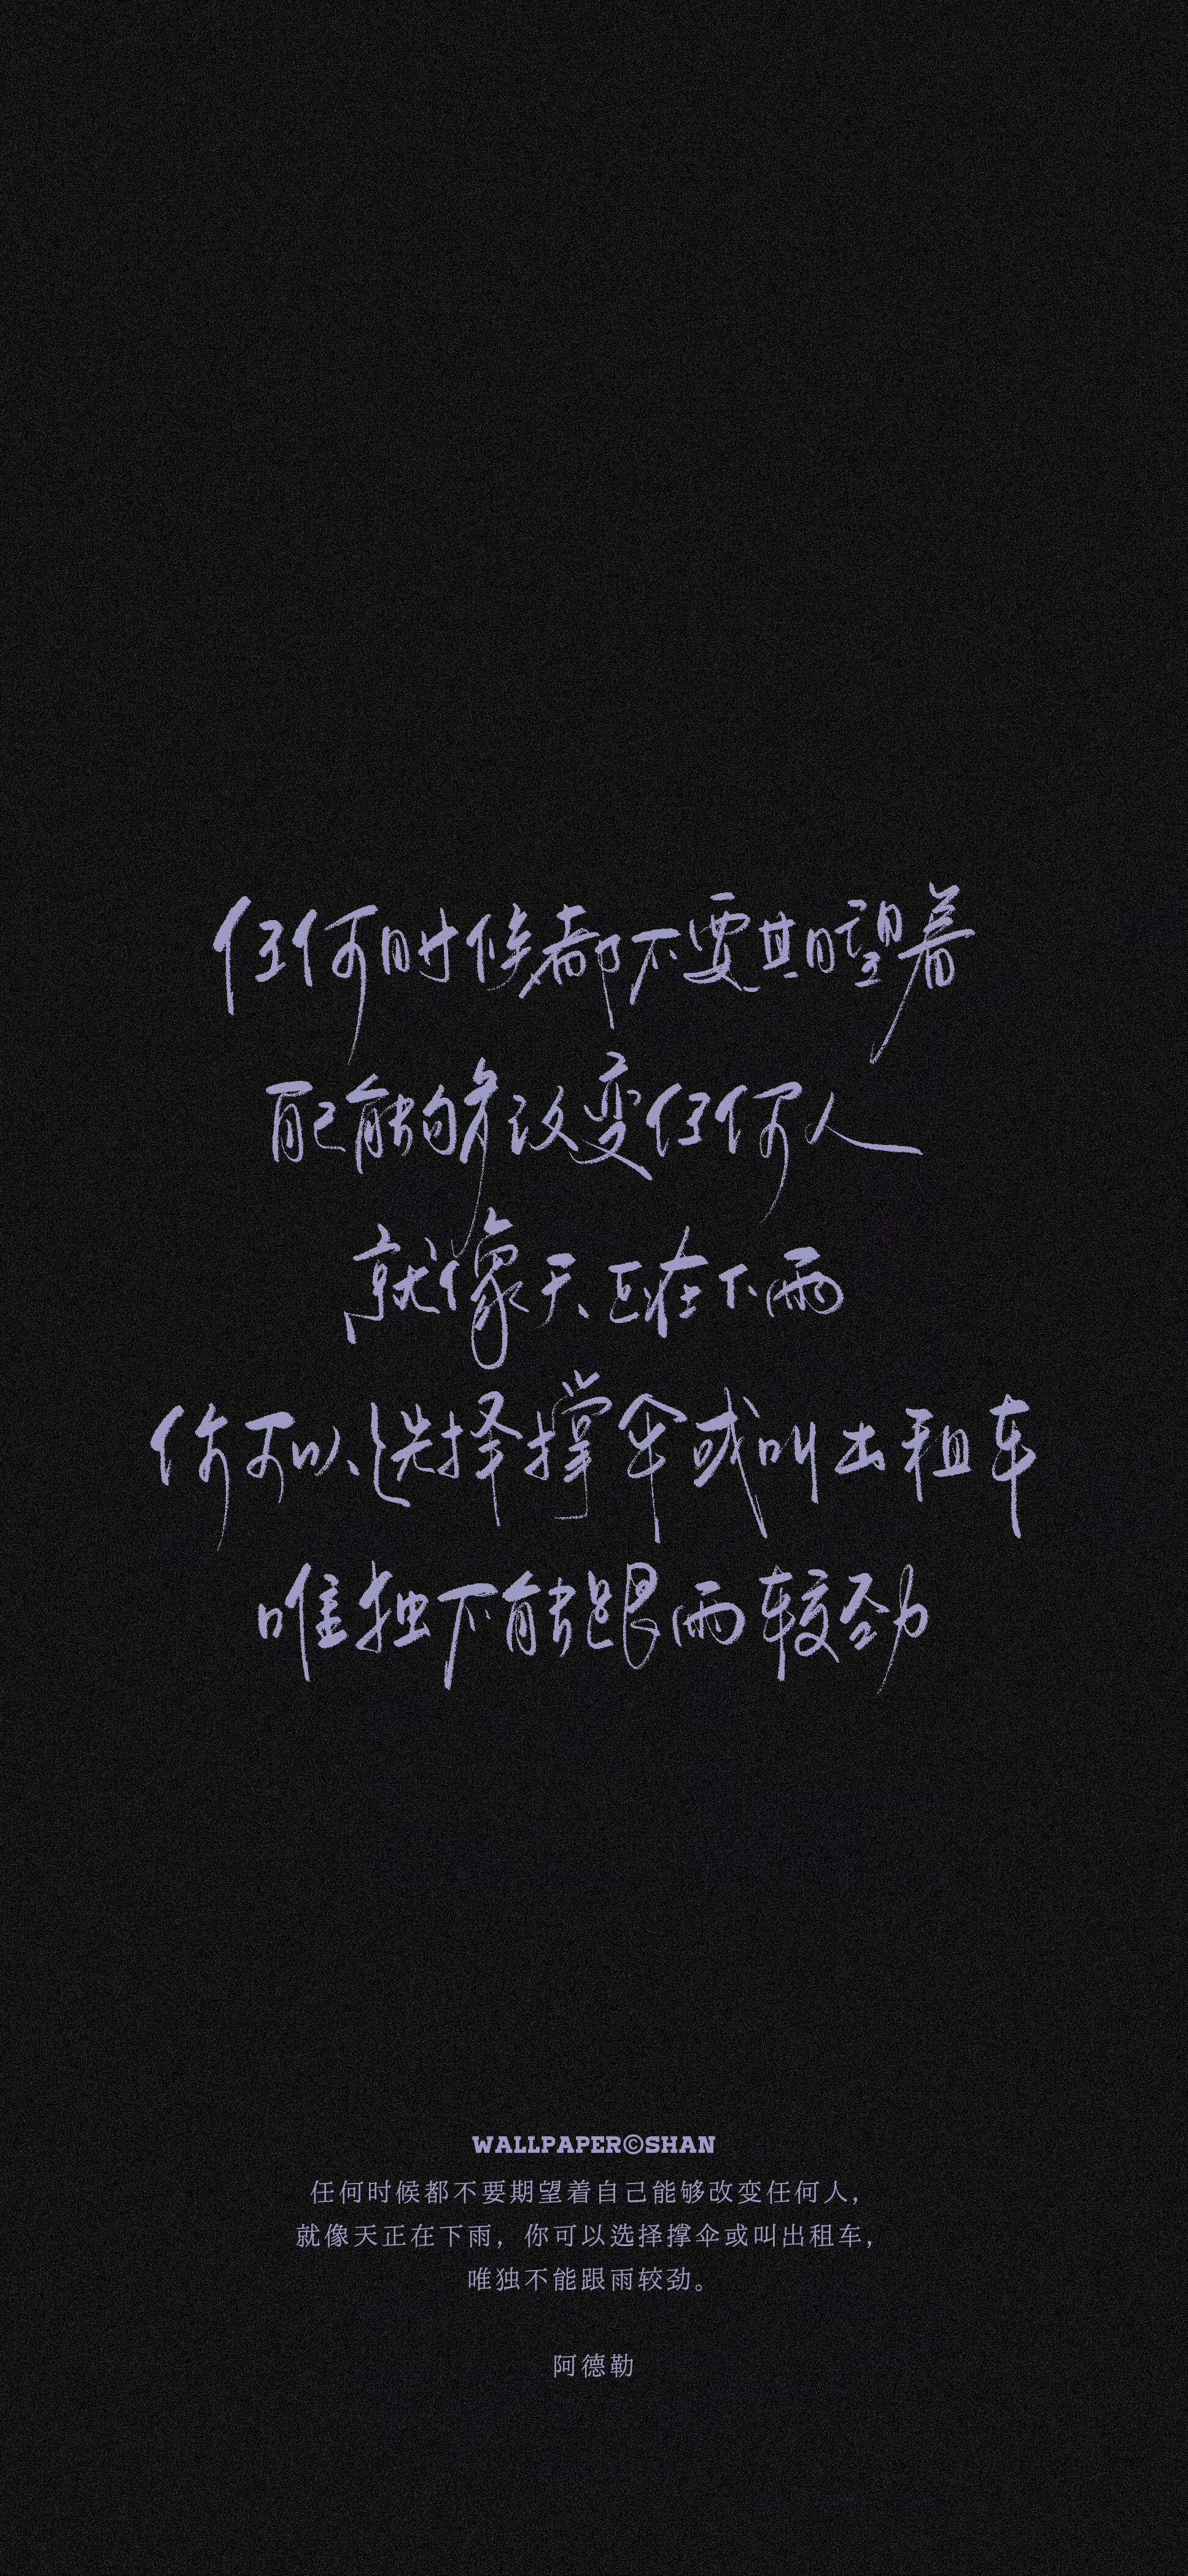 任何时候都不要期望着
自己能够改变任何人
就像天正在下雨
你可以选择撑伞或叫出租车
唯独不能跟雨较劲
WALLPAPER©SHAN
任何时候都不要期望着自己能够改变任何人，
就像天正在下雨，你可以选择撑伞或叫出租车，
唯独不能跟雨较劲。
阿德勒